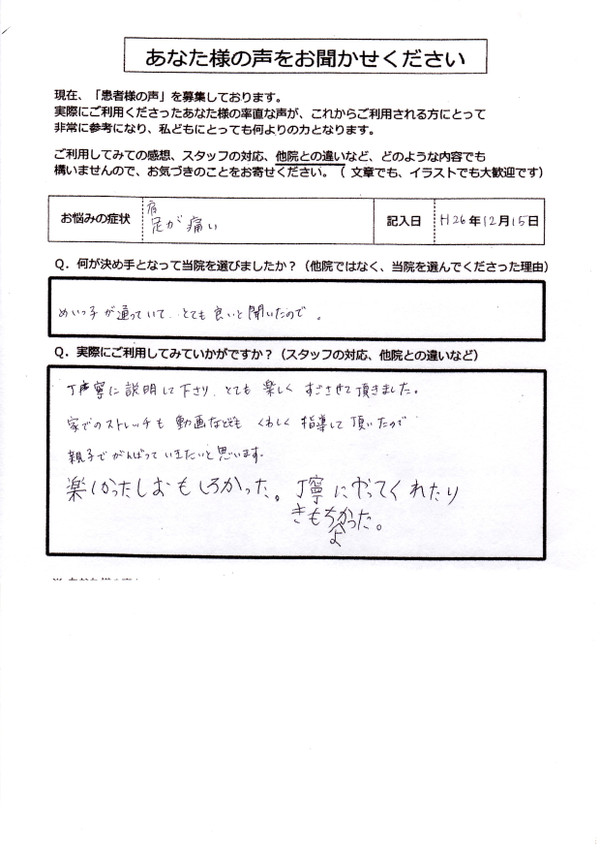 あなた様の声をお聞かせください
現在、「患者様の声」を募集しております。
実際にご利用くださったあなた様の率直な声が、これからご利用される方にとって
非常に参考になり、私どもにとっても何よりの力となります。
ご利用してみての感想、スタッフの対応、他院との違いなど、どのような内容でも
構いませんので、お気づきのことをお寄せください。（ 文章でも、イラストでも大歓迎です）
お悩みの症状
肩
足が痛い
記入日
H26年12月15日
Q．何が決め手となって当院を選びましたか？（他院ではなく、当院を選んでくださった理由）
めいっ子が通っていて、とても良いと聞いたので。
Q．実際にご利用してみていかがですか？（スタッフの対応、他院との違いなど）
丁寧に説明して下さり、とても楽しくすごさせて頂きました。
家でのストレッチも動画などでもくわしく指導して頂いたので
親子でがんばっていきたいと思います。
楽しかったしおもしろかった。丁寧にやってくれたり
きもちよかった。